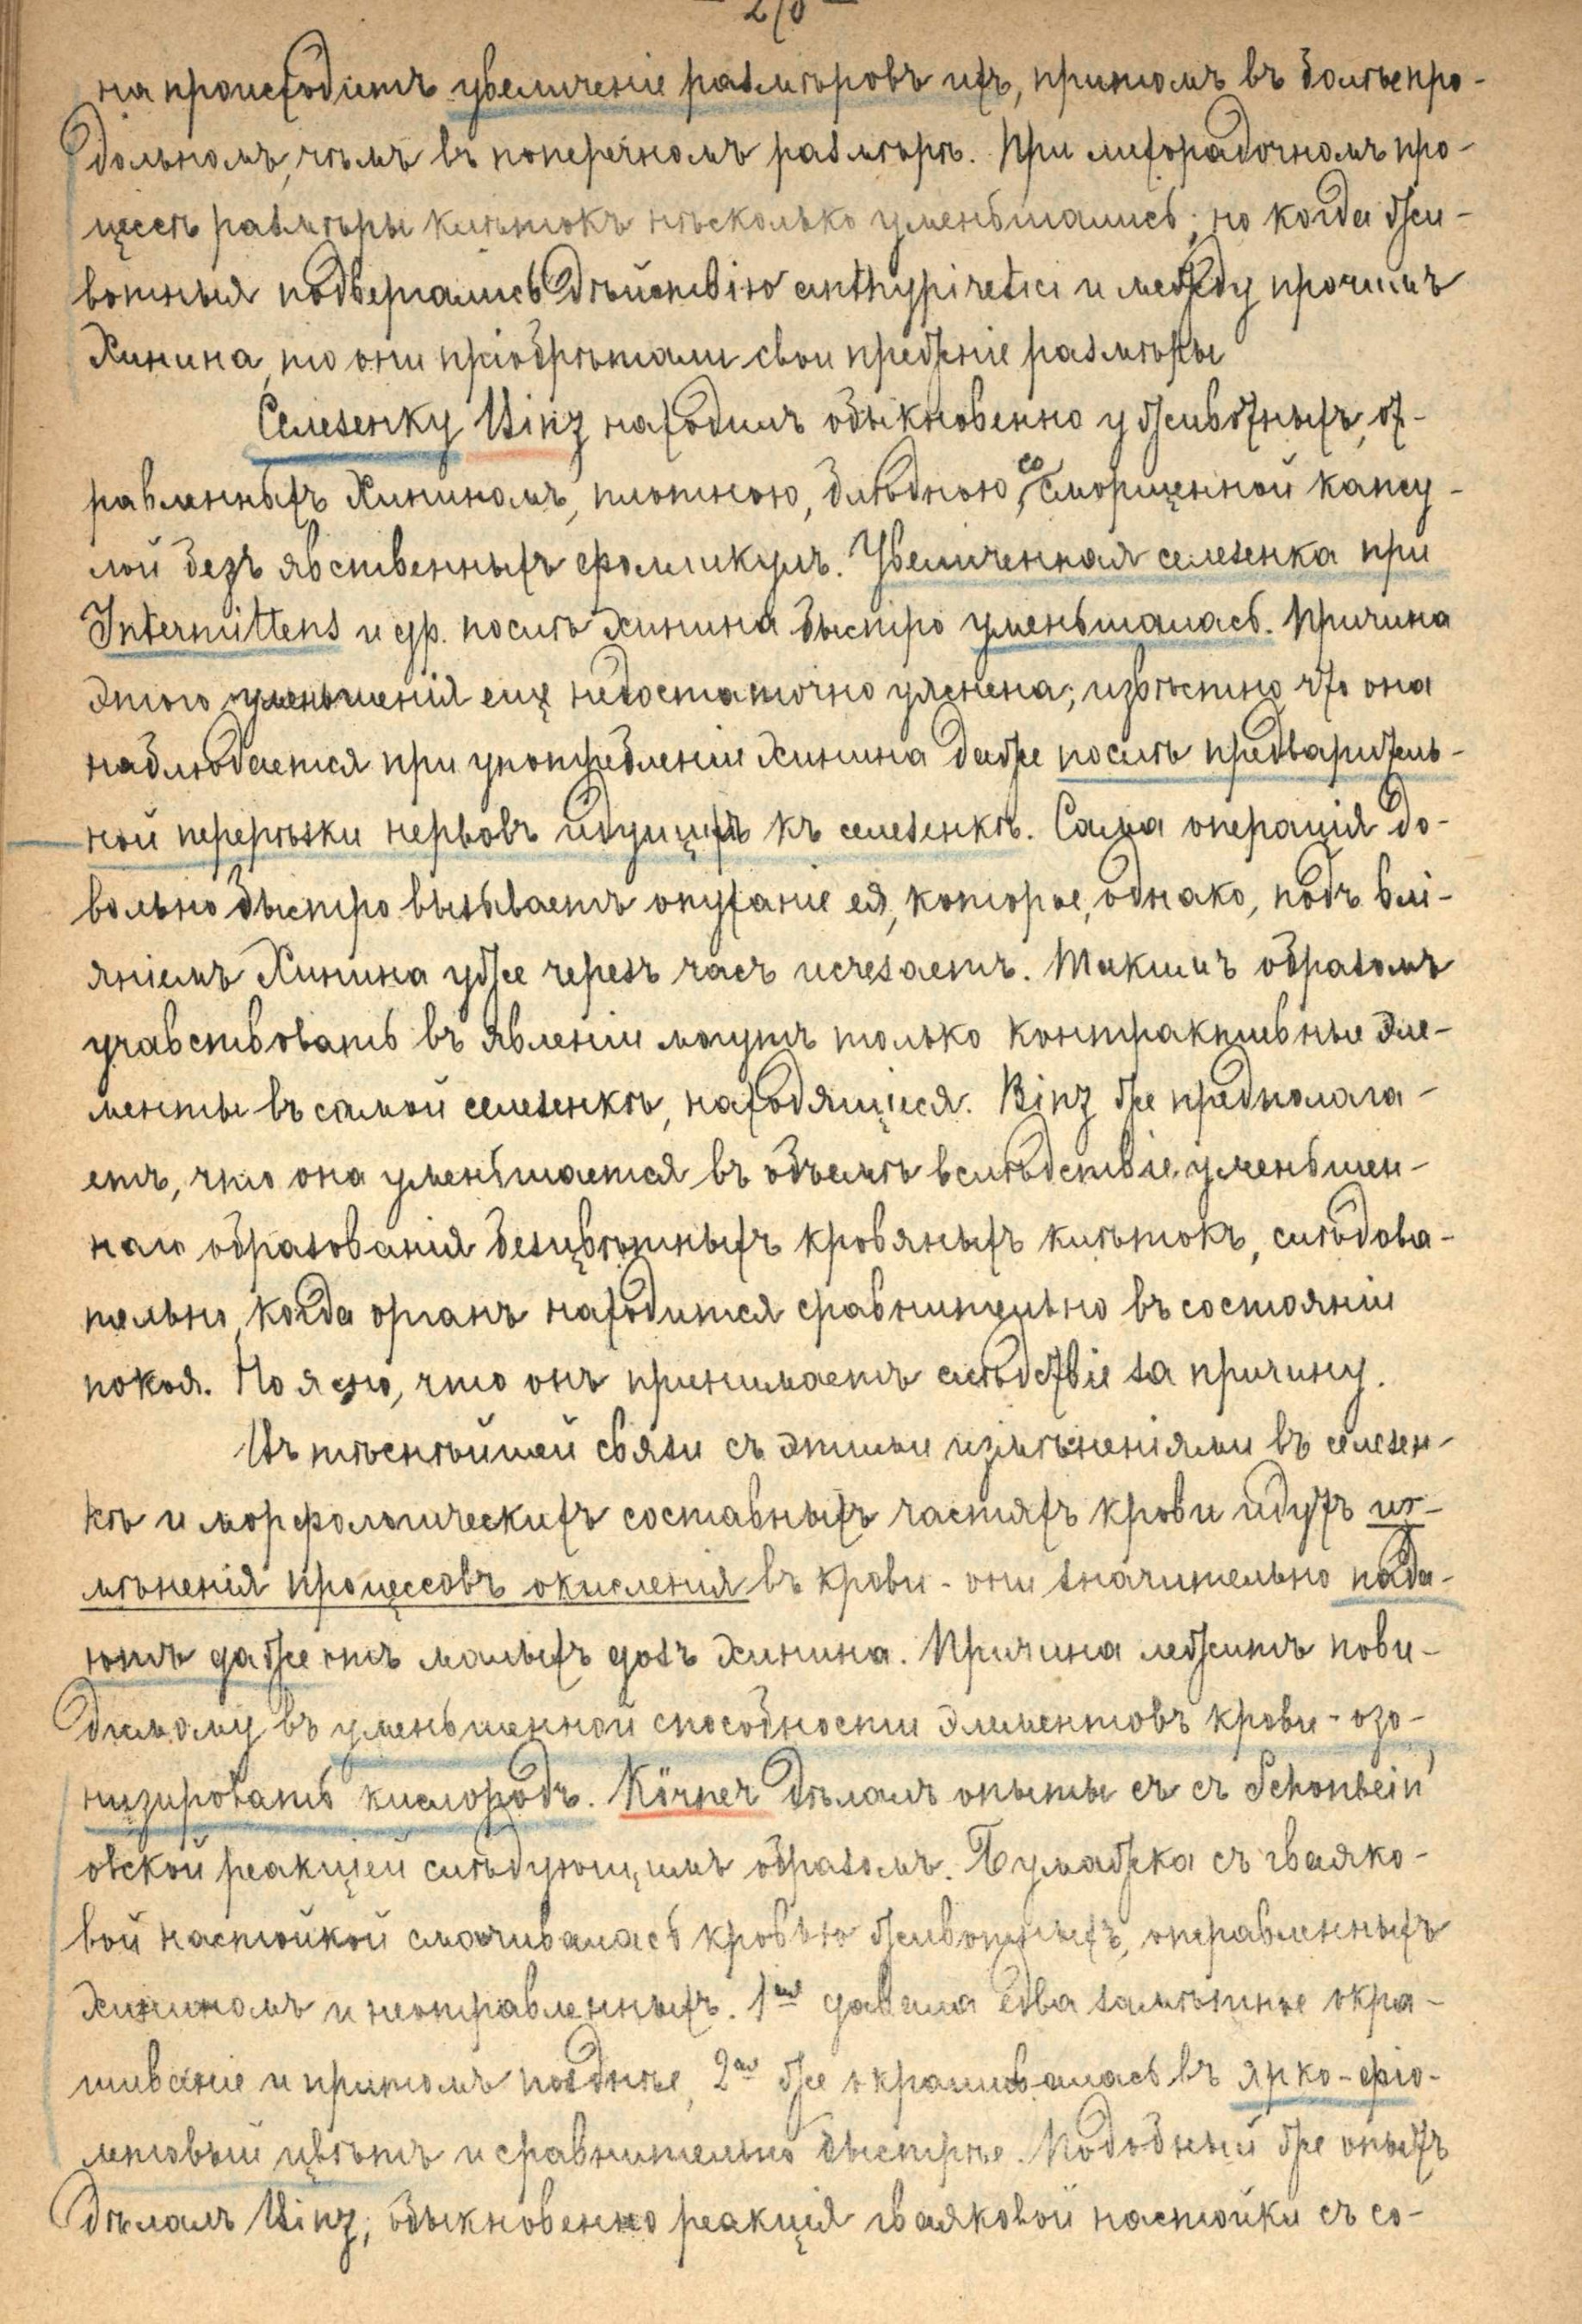 на происходитъ увеличеніе размѣровъ ихъ, притомъ въ болѣе про-
дольномъ, чѣмъ въ поперечномъ размѣрѣ. При лихорадочномъ про-
цессѣ размѣры клѣтокъ нѣсколько уменьшались; но когда жи-
вотныя подвергались дѣйствію anthypiretici и между прочимъ
Хинина, то они пріобрѣтали свои прежніе размѣры
Селезенку Binz находилъ обыкновенно у животныхъ, от-
равленныхъ Хининомъ, плотною, блѣдною, со сморщенной капсу-
лой безъ явственныхъ фолликулъ. Увеличенная селезенка при
Intermittens и др. послѣ хинина быстро уменьшалась. Причина
этого уменьшенія еще недостаточно уяснена; извѣстно, что она
наблюдается при употребленіи хинина даже послѣ предваритель-
ной перерѣзки нервовъ идущихъ къ селезенкѣ. Сама операція до-
вольно быстро вызываетъ опуханіе ея, которое, однако, подъ влі-
яніемъ Хинина уже черезъ часъ исчезаетъ. Такимъ образомъ
учавствовать въ явленіи могутъ только контрактивные эле-
менты въ самой селезенкѣ, находящіеся. Binz же предполага-
етъ, что она уменьшается въ объемѣ вслѣдствіе уменьшен-
наго образованія безцвѣтныхъ кровяныхъ клѣтокъ, слѣдова-
тельно, когда органъ находится сравнительно въ состояніи
покоя. Но ясно, что онъ принимаетъ слѣдствіе за причину.
Въ тѣснѣйшей связи съ этими измѣненіями въ селезен-
кѣ и морфологическихъ составныхъ частяхъ крови идутъ из-
мѣненія процессовъ окисленія въ крови - они значительно пада-
ютъ даже отъ малыхъ дозъ хинина. Причина лежитъ пови-
димому въ уменьшенной способности элементовъ крови - озо-
низировать кислородъ. Körner дѣлалъ опыты съ съ Schonbein'
овской реакціей слѣдующимъ образомъ. Бумажка съ гваяко-
вой настойкой смачивалась кровью животныхъ, отравленныхъ
хининомъ и неотравленныхъ. 1ая давала едва замѣтное окра-
шиваніе и притомъ позднѣе, 2ая же окрашивалась въ ярко-фіо-
летовый цвѣтъ и сравнительно быстрѣе. Подобный же опытъ
дѣлалъ Binz; обыкновенно реакція гваяковой настойки съ со-